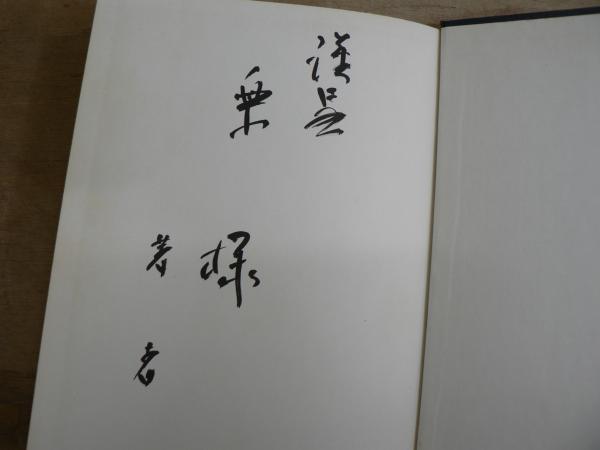 謹呈
様
著者